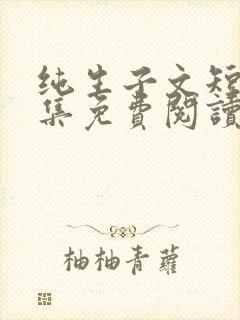 纯生子文短
集免費閱讀
柚柚青蘿